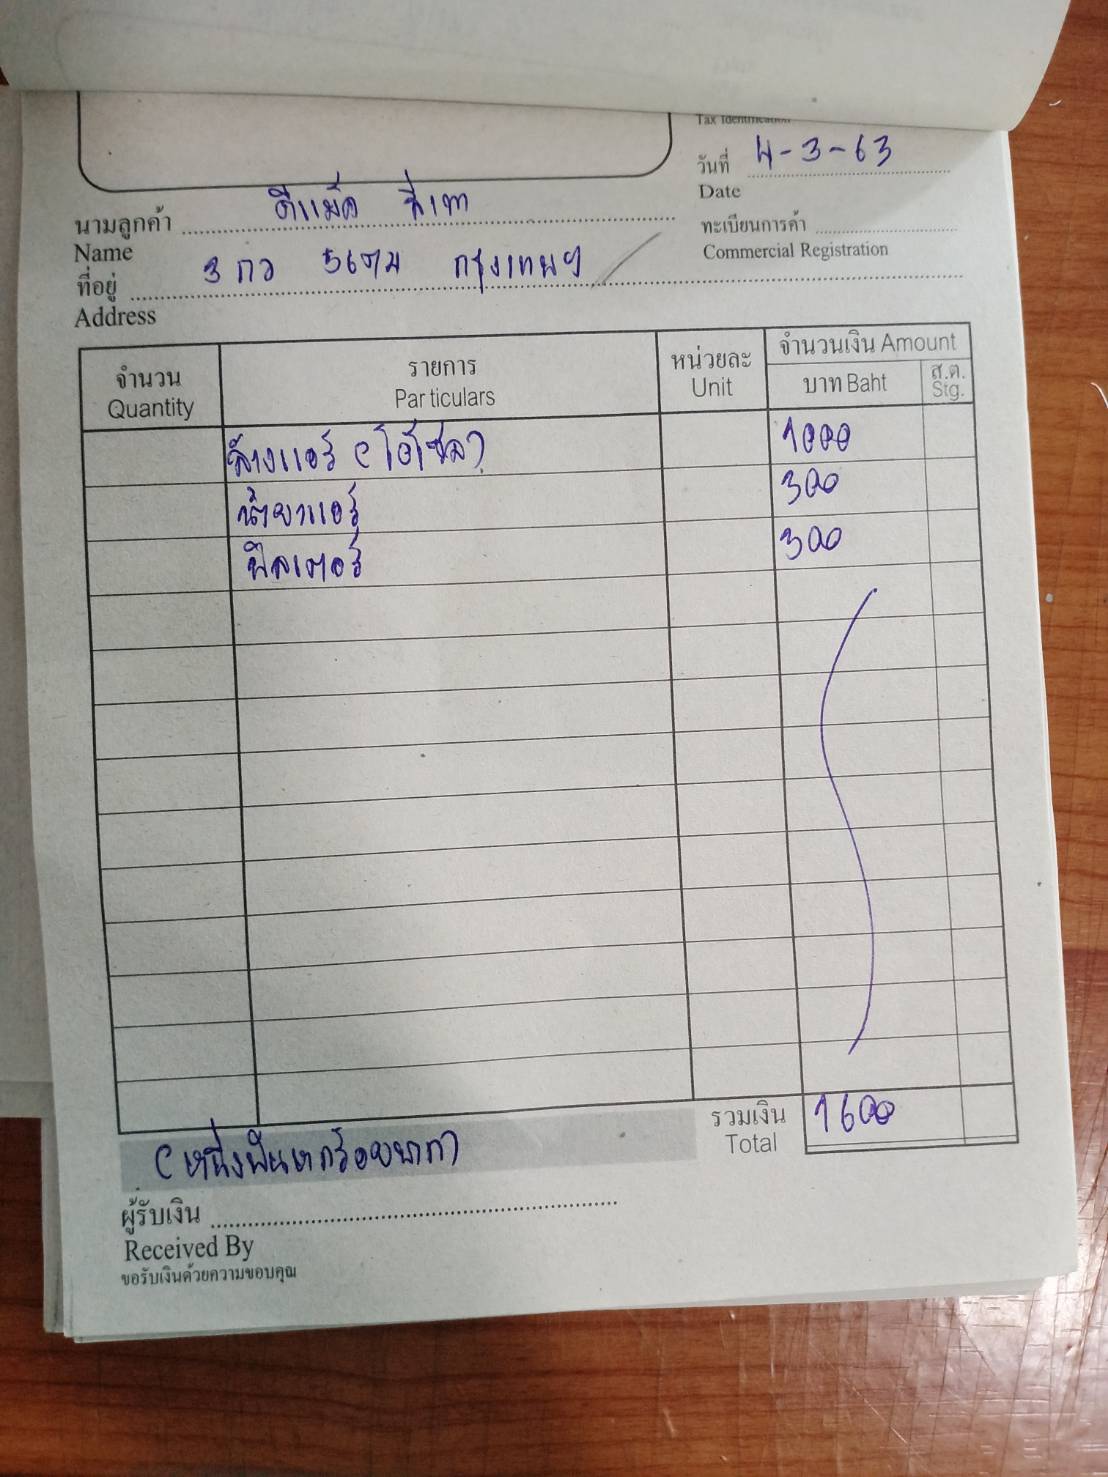 Tax Identification
วันที่ 4-3-63
Date
นามลูกค้า ดีแม็ค สีเทา
Name
ทะเบียนการค้า
Commercial Registration
ที่อยู่ 3 กว 5679 กรุงเทพฯ
Address
จำนวน รายการ หน่วยละ จำนวนเงิน Amount
Quantity Particulars Unit บาท Baht ส.ต. Stg.
ล้างแอร์ (โอโซล) 1000
น้ำยาแอร์ 300
ฟิลเตอร์ 300
รวมเงิน 1600
Total
(หนึ่งพันหกร้อยบาท)
ผู้รับเงิน
Received By
ขอรับเงินด้วยความขอบคุณ